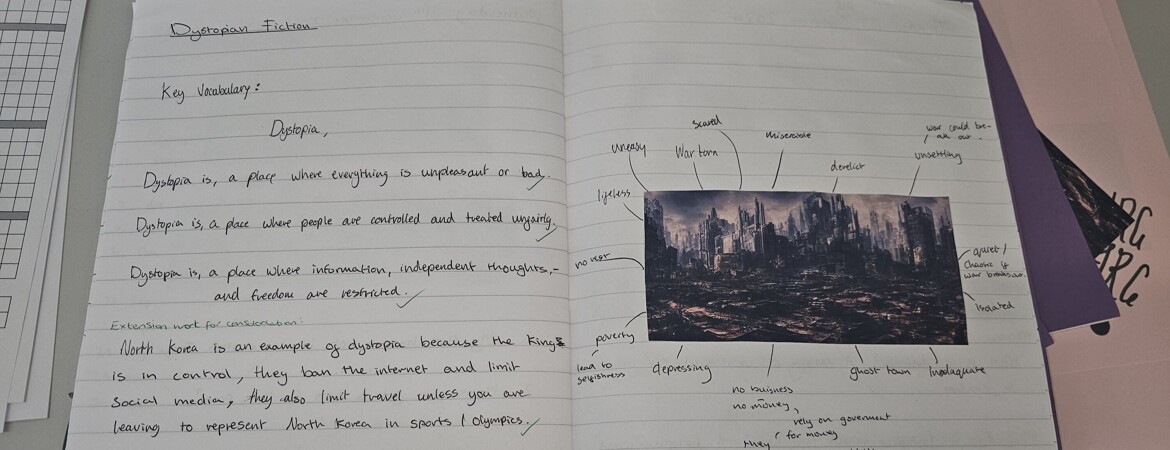 Dystopian Fiction
Key Vocabulary:
Dystopia,
Dystopia is, a place where everything is unpleasant or bad.
Dystopia is, a place where people are controlled and treated unfairly.
Dystopia is, a place where information, independent thoughts,
and freedom are restricted.
Extension work for consolidation:
North Korea is an example of dystopia because the King
is in control, they ban the internet and limit
social media, they also limit travel unless you are
leaving to represent North Korea in sports / Olympics.
scared
miserable
war could bre-
ak out
uneasy
War torn
derelict
unsettling
lifeless
no rest
quiet /
chaotic if
war breaks out
isolated
poverty
lead to
selfishness
depressing
ghost town
Inadaquate
no buisness
no money,
rely on goverment
for money
they